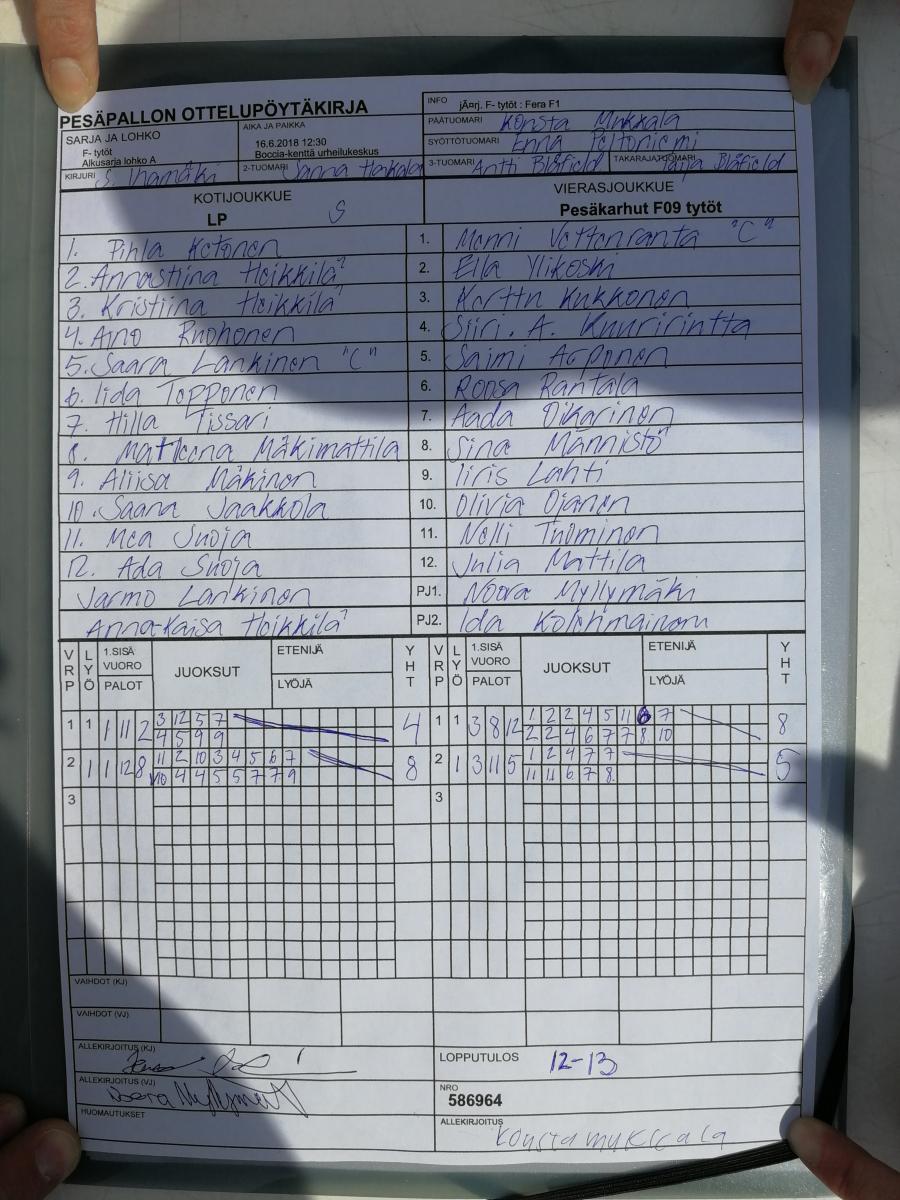 PESÄPALLON OTTELUPÖYTÄKIRJA
SARJA JA LOHKO
F- tytöt
Alkusarja lohko A
AIKA JA PAIKKA
16.6.2018 12:30
Boccia-kenttä urheilukeskus
KIRJURI S. Ihamäki
2-TUOMARI Sanna Heikkala
INFO jÄ¤rj. F- tytöt : Fera F1
PÄÄTUOMARI Konsta Mukkala
SYÖTTÖTUOMARI Enna Peltoniemi
3-TUOMARI Antti Blåfield TAKARAJATUOMARI Blåfield
KOTIJOUKKUE
LP S
VIERASJOUKKUE
Pesäkarhut F09 tytöt
1. Pihla Ketonen
1. Menni Vettenranta "C"
2. Annastiina Heikkilä
2. Ella Ylikoski
3. Kristiina Heikkilä
3. Kerttu Kukkonen
4. Aino Ruohonen
4. Siiri. A. Kuuririntta
5. Saara Lankinen "C"
5. Saimi Arponen
6. Iida Topponen
6. Roosa Rantala
7. Hilla Tissari
7. Aada Oikarinen
8. Matleena Mäkimattila
8. Sina Männistö
9. Aliisa Mäkinen
9. Iiris Lahti
10. Saana Jaakkola
10. Olivia Ojanen
11. Mea Suoja
11. Nelli Tuominen
12. Ada Suoja
12. Julia Mattila
Jarmo Lankinen
PJ1. Noora Myllymäki
Anna-Kaisa Heikkilä
PJ2. Ida Kolehmainen
VRP LYÖ 1.SISÄ VUORO PALOT JUOKSUT ETENIJÄ LYÖJÄ YHT
VRP LYÖ 1.SISÄ VUORO PALOT JUOKSUT ETENIJÄ LYÖJÄ YHT
1 1 1 11 2 3 12 5 7 4
4 5 9 9
1 1 3 8 12 1 2 2 4 5 11 6 7 8
2 2 4 6 7 7 8 10
2 1 1 12 8 11 2 10 3 4 5 6 7 8
10 4 4 5 5 7 7 9
2 1 3 11 5 1 2 4 7 7 5
11 11 6 7 8
3
3
VAIHDOT (KJ)
VAIHDOT (VJ)
ALLEKIRJOITUS (KJ)
LOPPUTULOS 12-13
ALLEKIRJOITUS (VJ)
Noora Myllymäki
NRO
586964
HUOMAUTUKSET
ALLEKIRJOITUS
Konsta mukkala